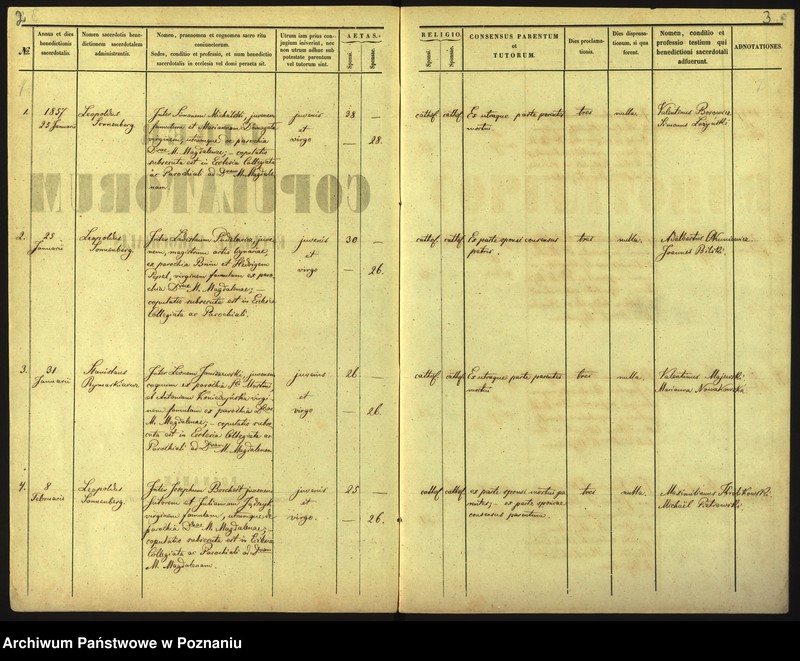 2.
3
№
Annus et dies
benedictionis
sacerdotalis.
Nomen sacerdotis bene-
dictionem sacerdotalem
administrantis.
Nomen, praenomen et cognomen sacro ritu
coniunctorum.
Sedes, conditio et professio, et num benedictio
sacerdotalis in ecclesia vel domi peracta sit.
Utrum iam prius con-
jugium iniverint, nec
non utrum adhuc sub
potestate parentum
vel tutorum sint.
AETAS.
Sponsi.
Sponsae.
RELIGIO.
Sponsi.
Sponsae.
CONSENSUS PARENTUM
et
TUTORUM.
Dies proclama-
tionis.
Dies dispensa-
tionum, si qua
forent.
Nomen, conditio et
professio testium qui
benedictioni sacerdotali
adfuerunt.
ADNOTATIONES.
1.
1857
25 Januarii
Leopoldus
Sonnenberg
Inter Simonem Michalski, juvenem
famulum et Mariannam
virginem, utrumque ex parochia
Dnae M. Magdalenae; - copulatio
subsecuta est in Ecclesia Collegiata
ac Parochiali ad Dnam M. Magdale
nam.
juvenis
et
virgo
38 —
— 28.
cathol. cathol.
Ex utraque parte parentes
mortui.
tres
nulla.
Valentinus Borowicz
Simonus
2.
25
Januarii
Leopoldus
Sonnenberg.
Inter Ladislaum juve-
nem, magistrum artis
ex parochia Bnin et Hedvigem
virginem famulam ex paro
chia Dnae M. Magdalenae; —
copulatio subsecuta est in Ecclesia
Collegiata ac Parochiali.
juvenis
et
virgo
30 —
— 26.
cathol. cathol.
Ex parte sponsi consensus
patris.
tres
nulla.
Adalbertus
Joannes Bilski.
3.
31
Januarii
Stanislaus
Rymarkiewicz
Inter Leonem Janiszewski, juvenem
coquum ex parochia Sti Martini
et Antoniam Konieczyńska virgi
nem famulam ex parochia Dnae
M. Magdalenae; - copulatio subse
cuta est in Ecclesia Collegiata ac
Parochiali ad Dnam M. Magdalenam
juvenis
et
virgo
26 —
— 26.
cathol. cathol.
Ex utraque parte parentes
mortui
tres
nulla.
Valentinus Majewski
Marianna Nowakowska
4.
8
Februarii
Leopoldus
Sonnenberg.
Inter Josephum Borchert juvenem
sutorem et Juliannam
virginem famulam, utrumque de
parochia Dnae M. Magdalenae;
copulatio subsecuta est in Ecclesia
Collegiata ac Parochiali ad Dnam
M. Magdalenam.
juvenis
et
virgo.
25 —
— 26.
cathol. cathol.
ex parte sponsi mortui pa
rentes; - ex parte sponsae
consensus parentum.
tres
nulla.
Maximilianus
Michael Pietrowski.
COPULATORUM
Archiwum Państwowe w Poznaniu